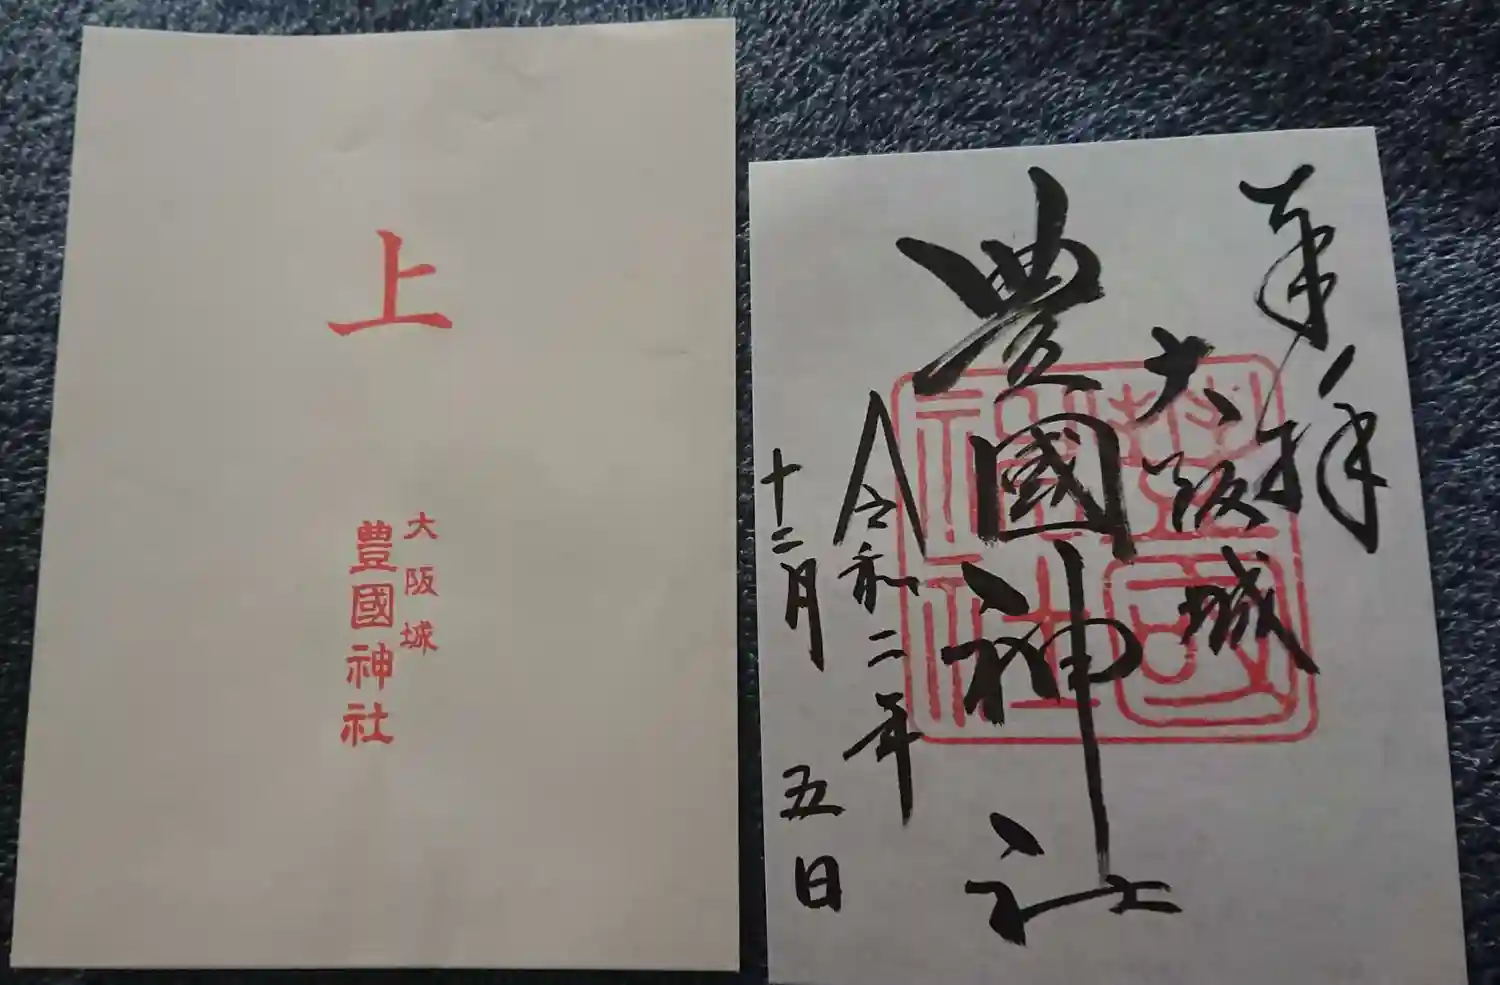 上
大阪城
豊國神社
奉拝
大阪城
豊國神社
令和二年
十二月五日
豊國神社